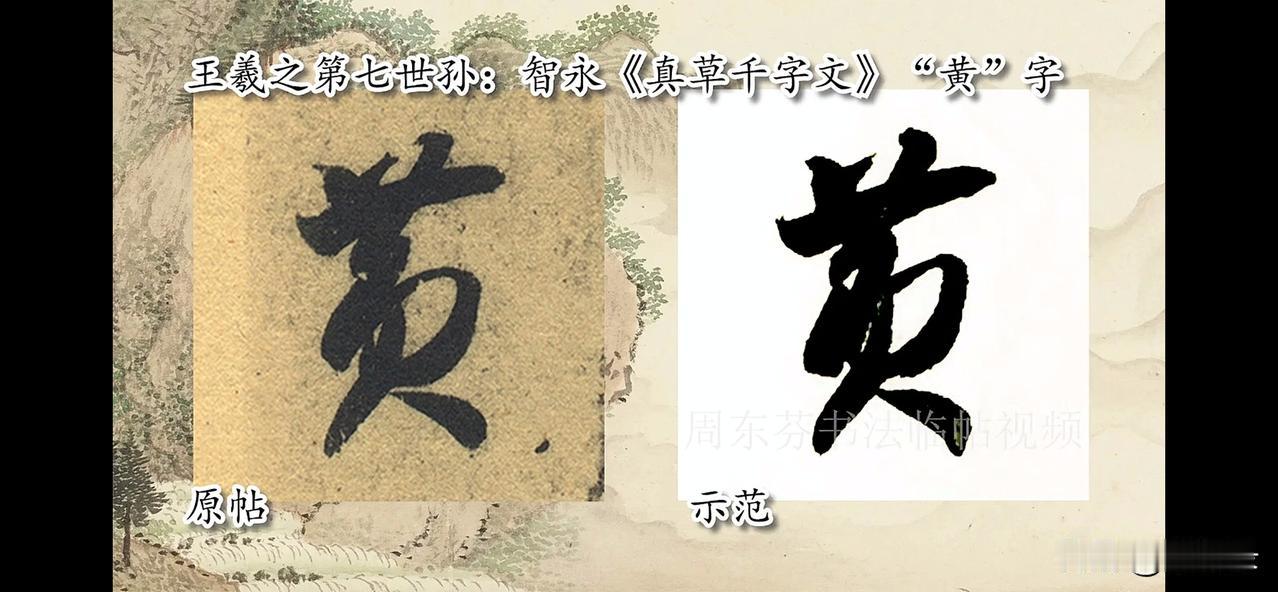 王羲之第七世孙：智永《真草千字文》“黄”字
黄 黄
周东芬书法临帖视频
原帖 示范